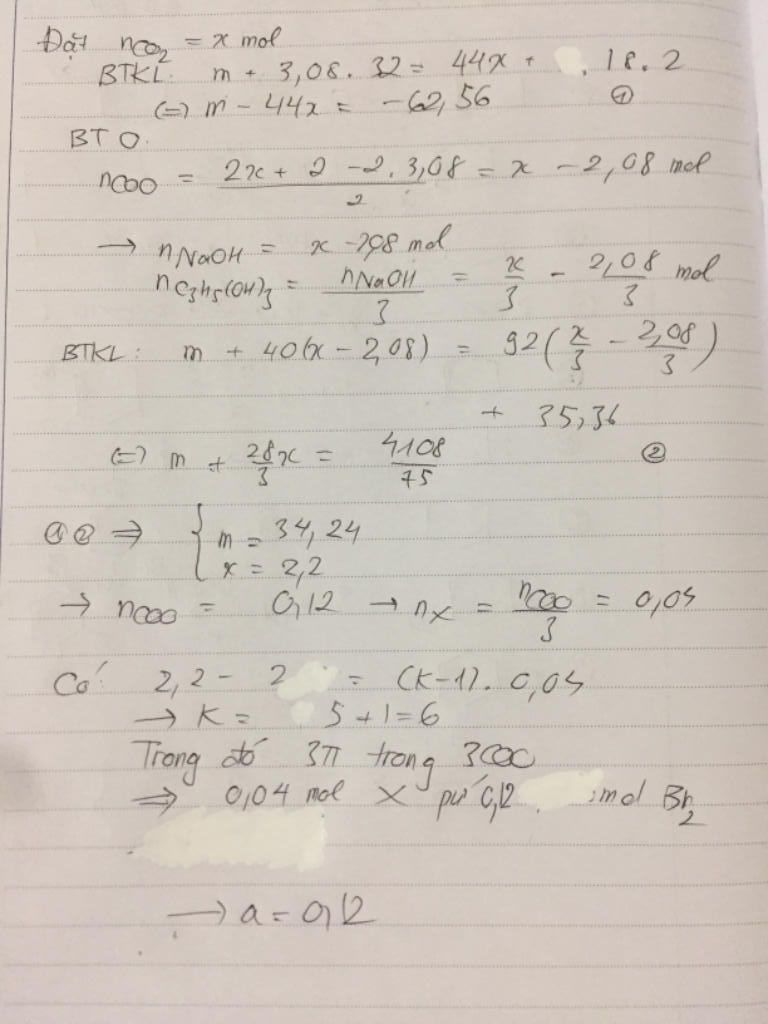 Đặt nCO2 = x mol
BTKL: m + 3,08 . 32 = 44x + . 18 . 2
(=) m - 44x = -62,56 ①
BT O.
nCOO = (2x + 2 - 2. 3,08)/2 = x - 2,08 mol
→ nNaOH = x - 2,08 mol
nC3H5(OH)3 = nNaOH/3 = x/3 - 2,08/3 mol
BTKL: m + 40(x - 2,08) = 92(x/3 - 2,08/3)
+ 35,36
(=) m + 28/3 x = 4108/75 ②
① ② ⇒ { m = 34,24
x = 2,2
→ nCOO = 0,12 → nX = nCOO/3 = 0,04
Có: 2,2 - 2 = (K-1). 0,04
→ K = 5 + 1 = 6
Trong đó 3π trong 3COO
⇒ 0,04 mol X pứ 0,12 mol Br2
→ a = 0,12